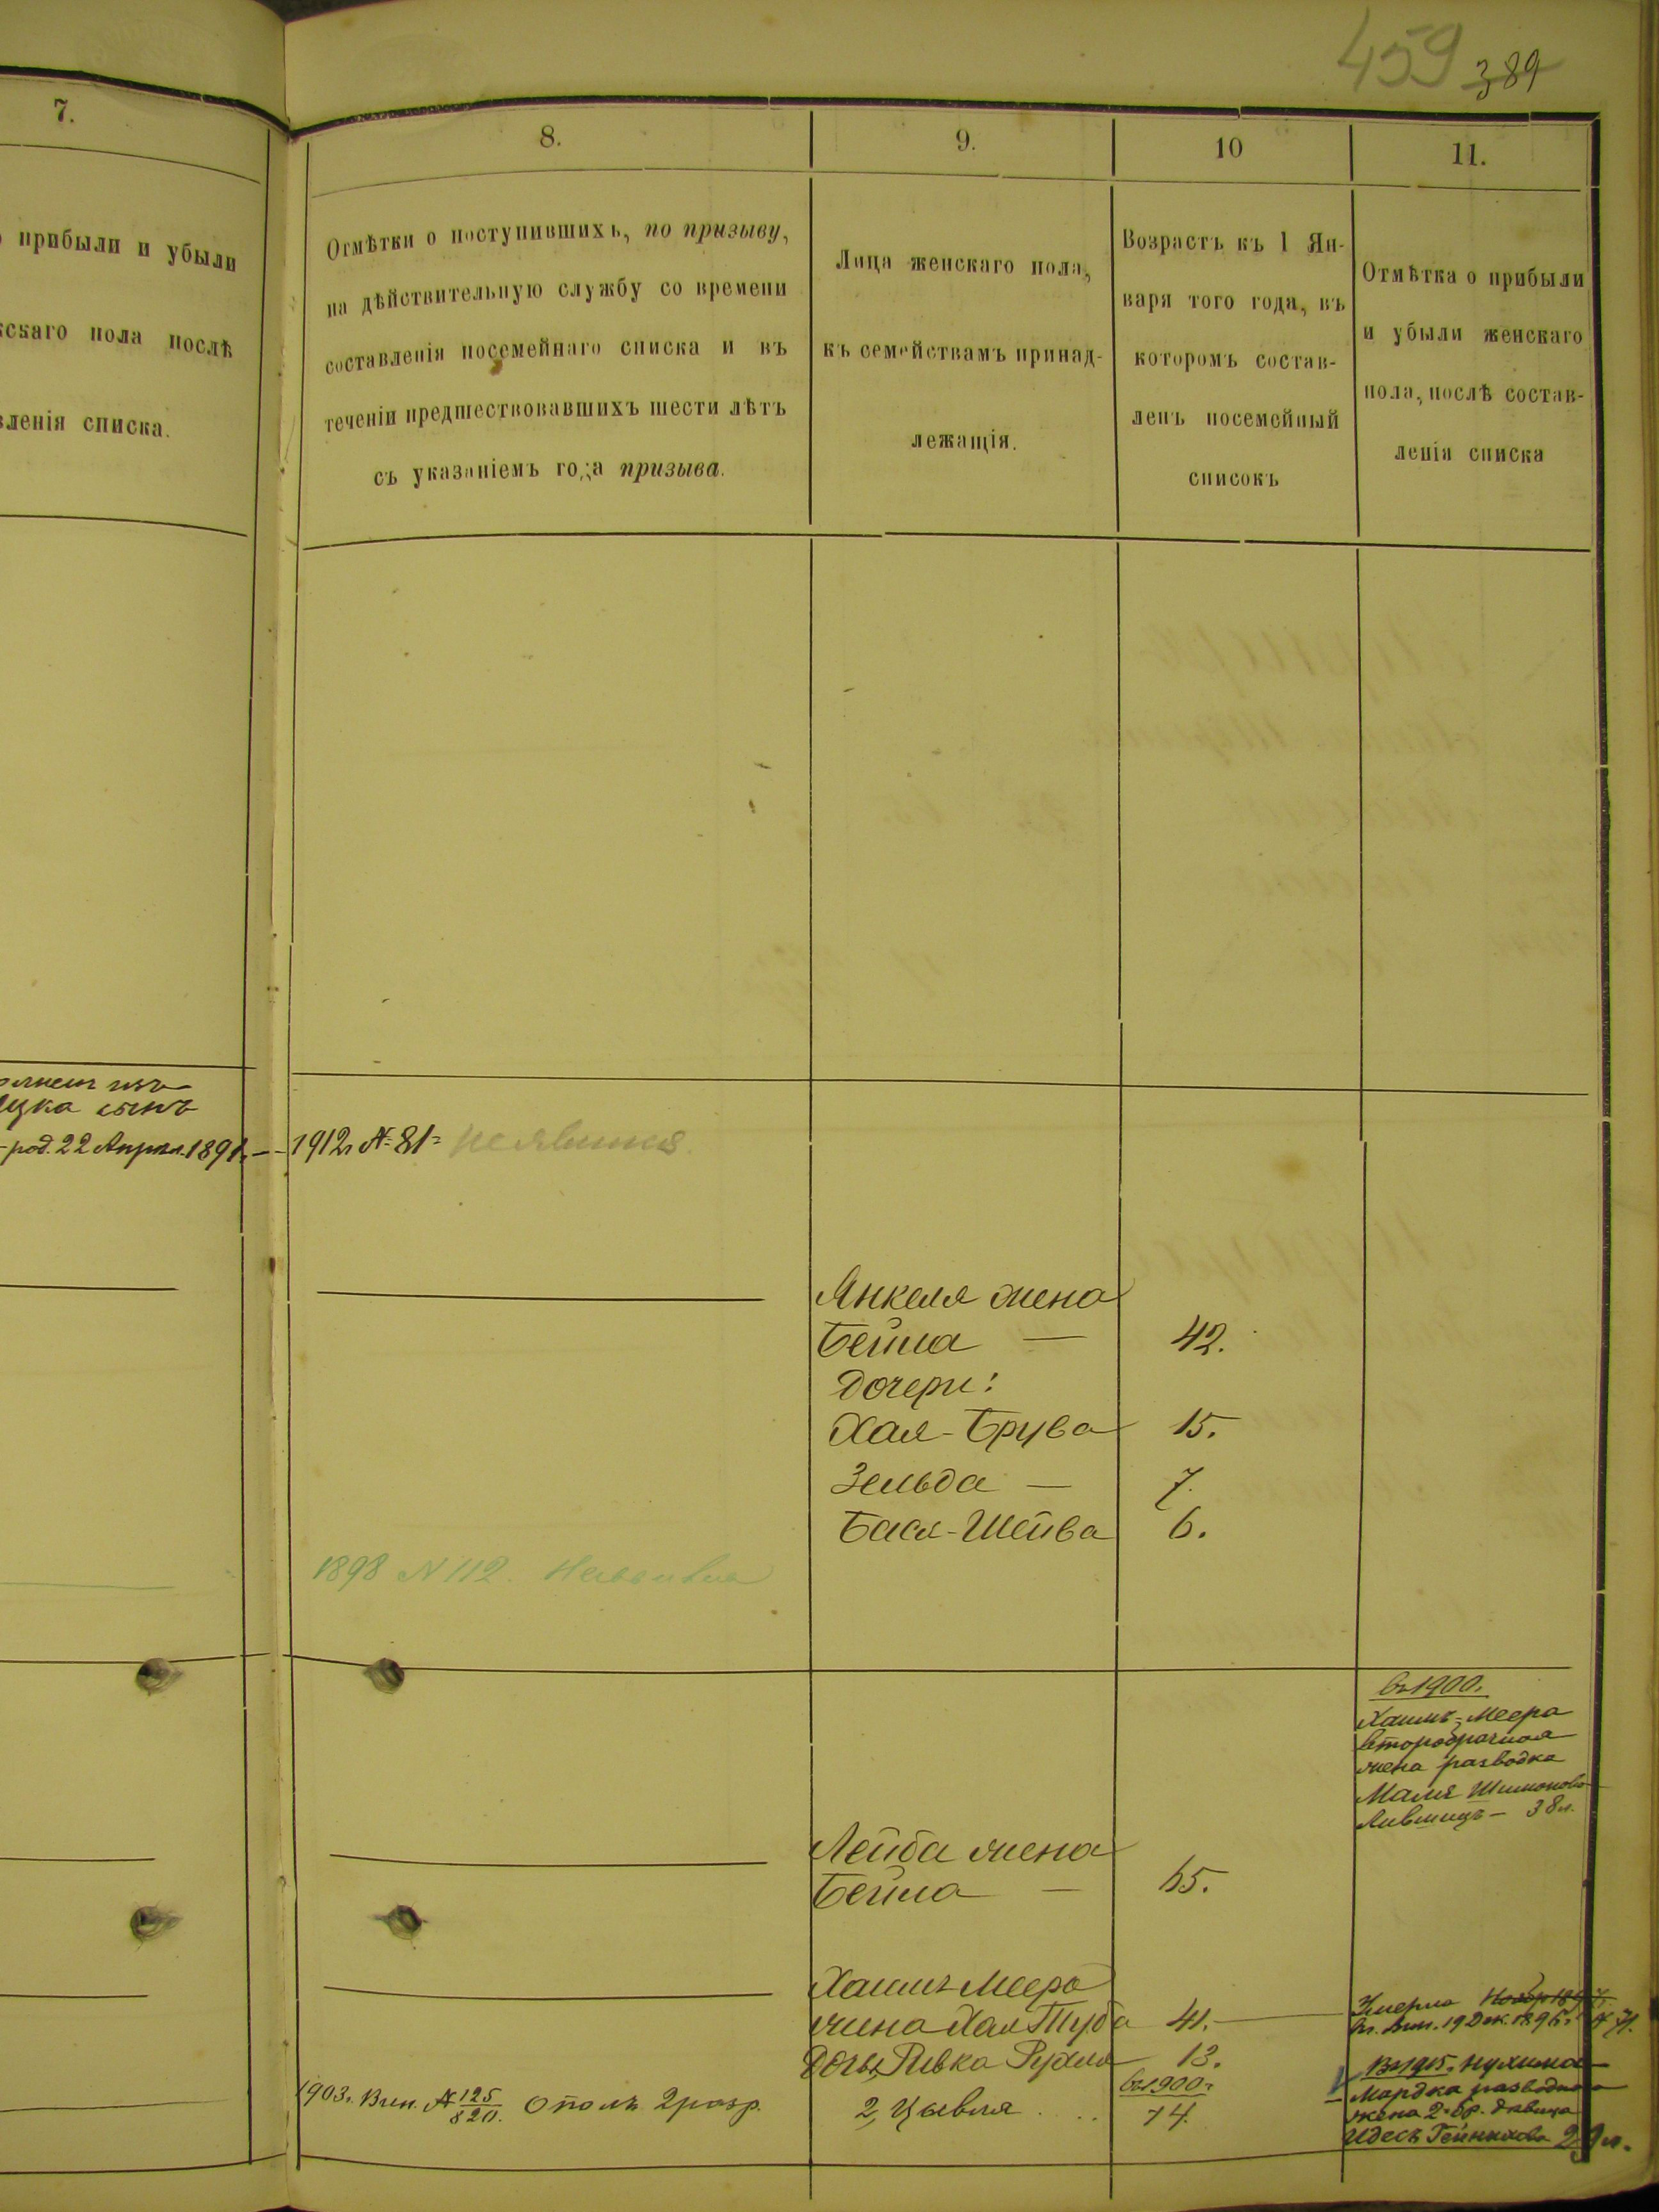 459 389
7.
8.
9.
10
11.
прибыли и убыли
скаго пола послѣ
вленія списка.
Отмѣтки о поступившихъ, по призыву,
на дѣйствительную службу со времени
составленія посемейнаго списка и въ
теченіи предшествовавшихъ шести лѣтъ
съ указаніемъ года призыва.
Лица женскаго пола,
къ семействамъ принад-
лежащія.
Возрастъ къ 1 Ян-
варя того года, въ
которомъ состав-
ленъ посемейный
списокъ
Отмѣтка о прибыли
и убыли женскаго
пола, послѣ состав-
ленія списка
изъ
сынъ
род. 22 Апрѣл. 1891 г. —
1912 г. № 81 = не явился
Янкеля жена
Бейла — 42.
Дочери:
Хая-Брува 15.
Зельда — 7.
Бася-Шейва 6.
1898 № 112.
въ 1900 г.
Хаимъ-Меера
второбрачная
жена разводка
Маля Шимонова
Лившицъ — 38 л.
Лейба жена
Бейла — 65.
Хаимъ-Меера
жена Хая Туба 41. —
Умерла
19 Дек. 1896 г. № 71.
Дочь, Ривка Рухля 13.
въ 1900 г.
2, Цывля . . 14.
1903 г. Вил. № 125/820. Ополч. 2 разр.
Въ 1915 г. Нухима
Мордка
жена 2-бр. дѣвица
Идесъ Гейнихова